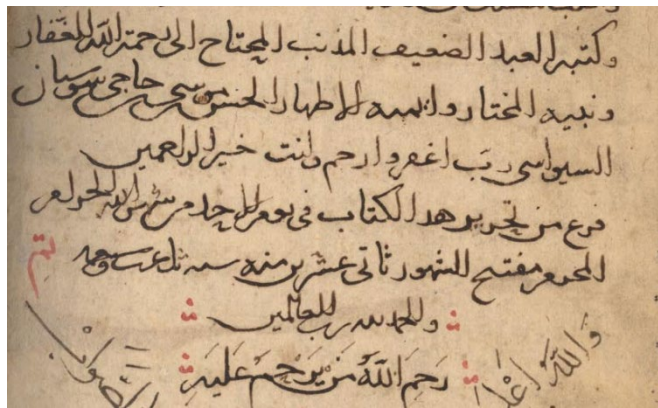 وكتبه العبد الضعيف المذنب المحتاج الى رحمة الله الغفار
ونبيه المختار وائمه الاطهار حاجى
السيواسى رب اغفر وارحم وانت خير الراحمين
فرغ من تحرير هدا الكتاب فى يوم الاحد من شهر الله الحرام
المحرم مفتح الشهور ثانى عشرين منه سنه
تم
والحمد لله رب العالمين
رحم الله من يرحم عليه
والله اعلم
بالصواب